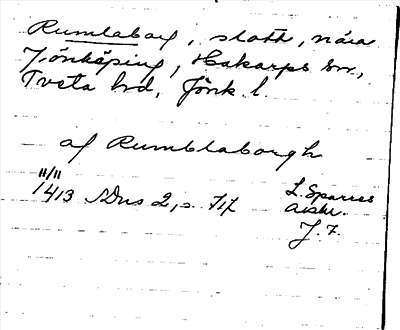 Rumlaborg, slott, nära
Jönköping, Hakarps sn,
Tveta hd, Jönk. l.
af Rumblaborgh
11/11
1413 SDns 2, s. 717
L. Sparres
avskr.
J. F.